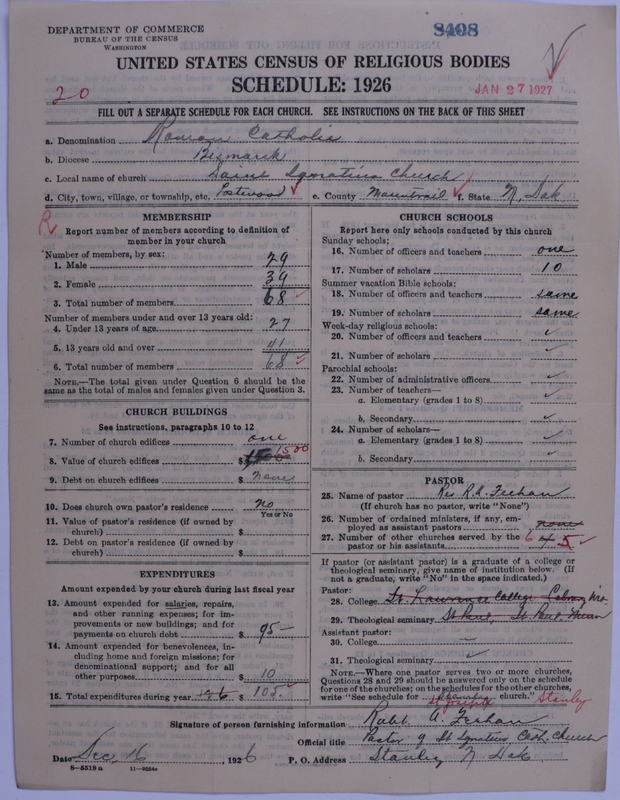 DEPARTMENT OF COMMERCE
BUREAU OF THE CENSUS
WASHINGTON
8408
UNITED STATES CENSUS OF RELIGIOUS BODIES
SCHEDULE: 1926
20
JAN 27 1927
FILL OUT A SEPARATE SCHEDULE FOR EACH CHURCH. SEE INSTRUCTIONS ON THE BACK OF THIS SHEET
a. Denomination Roman Catholic
b. Diocese Bismarck
c. Local name of church Saint Ignatius Church
d. City, town, village, or township, etc. e. County Mountrail f. State N. Dak
R
MEMBERSHIP
Report number of members according to definition of member in your church
Number of members, by sex:
1. Male 29
2. Female 39
3. Total number of members 68
Number of members under and over 13 years old:
4. Under 13 years of age 27
5. 13 years old and over 41
6. Total number of members 68
NOTE.—The total given under Question 6 should be the same as the total of males and females given under Question 3.
CHURCH BUILDINGS
See instructions, paragraphs 10 to 12
7. Number of church edifices one
8. Value of church edifices $1500 1500
9. Debt on church edifices $ none
10. Does church own pastor's residence? no
Yes or No
11. Value of pastor's residence (if owned by church) $
12. Debt on pastor's residence (if owned by church) $
EXPENDITURES
Amount expended by your church during last fiscal year
13. Amount expended for salaries, repairs, and other running expenses; for improvements or new buildings; and for payments on church debt $ 95
14. Amount expended for benevolences, including home and foreign missions; for denominational support; and for all other purposes $ 10
15. Total expenditures during year $ 105
CHURCH SCHOOLS
Report here only schools conducted by this church
Sunday schools:
16. Number of officers and teachers one
17. Number of scholars 10
Summer vacation Bible schools:
18. Number of officers and teachers same
19. Number of scholars same
Week-day religious schools:
20. Number of officers and teachers
21. Number of scholars
Parochial schools:
22. Number of administrative officers
23. Number of teachers—
a. Elementary (grades 1 to 8)
b. Secondary
24. Number of scholars—
a. Elementary (grades 1 to 8)
b. Secondary
PASTOR
25. Name of pastor Rev R.A. Feehan
(If church has no pastor, write "None")
26. Number of ordained ministers, if any, employed as assistant pastors none
27. Number of other churches served by the pastor or his assistants 6 4 5
If pastor (or assistant pastor) is a graduate of a college or theological seminary, give name of institution below. (If not a graduate, write "No" in the space indicated.)
Pastor:
28. College St. Lawrence College
29. Theological seminary St Paul, St Paul, Minn
Assistant pastor:
30. College
31. Theological seminary
NOTE.—Where one pastor serves two or more churches, Questions 28 and 29 should be answered only on the schedule for one of the churches; on the schedules for the other churches, write "See schedule for Stanley church." Stanley
St Joseph's
Signature of person furnishing information Robt A. Feehan
Official title Pastor of St Ignatius Cath. Church
Date Dec 16, 1926 P. O. Address Stanley N Dak
8—5519a 11—9084a